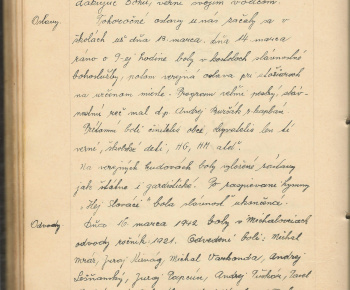 ďakujúc Bohu, verné svojim vodcom.
Oslavy.
Tohoročné oslavy u nás začaly sa v
školách už dňa 13. marca. Dňa 14. marca
ráno o 9-ej hodine boly v kostoloch slávnostné
bohoslužby, potom verejná oslava pri stožiaroch
na určenom mieste. Programu veľmi pestrý, sláv-
nostnú reč mal d.p. Andrej kaplán
Prítomní boli činitelia obce, obyvatelia len tí
verní, školské deti, HG, HM atď.
Na verejných budovách boly vyložené zástavy
jak štátne i gardistické. Po zaspievaní hymny
"Hej Slováci" bola slávnosť ukončená.
Odvody
Dňa 16. marca 1942 boly v Michalovciach
odvody ročník 1921. Odvedení boli: Michal
Mraz, Juraj Michal Varchonda, Andrej
Lešňanský, Juraj Andrej Pavel